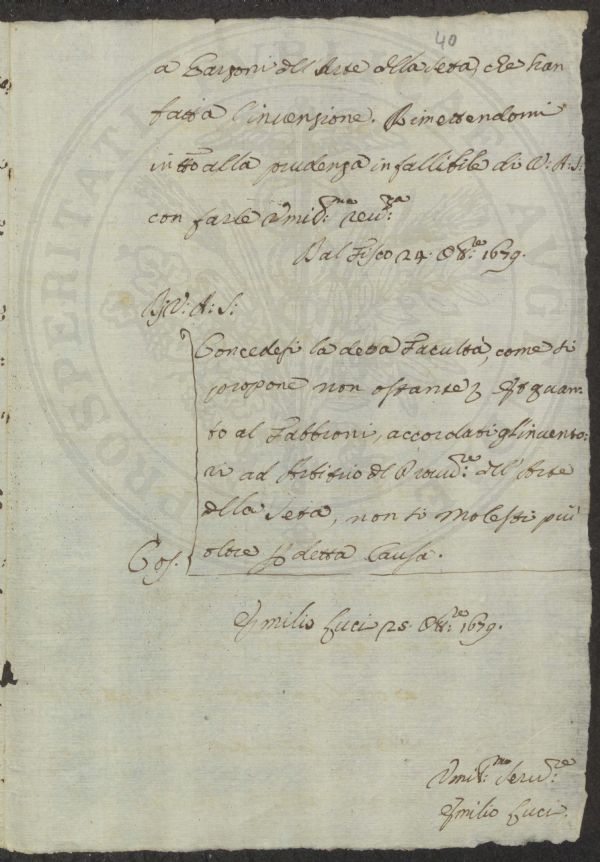 40
a Garzoni dell'Arte della Seta, che han
fatta l'invenzione. Rimettendomi
in tto alla prudenza infallibile di V: A: S:
con farle Umil:ma reu:za
Dal Fisco 24. 8bre 1679.
V: A: S:
Concedesi la detta Facultà, come si
propone non ostante; E quan-
to al Fabbroni, accordati gl'invento-
ri ad Arbitrio del Prouu:re dell'Arte
della Seta, non si molesti più
oltre p detta Causa.
Cos.
Emilio Luci 25. 8bre 1679.
Umil:mo Seru:re
Emilio Luci.
PROSPERITATI PUBLICAE AUG